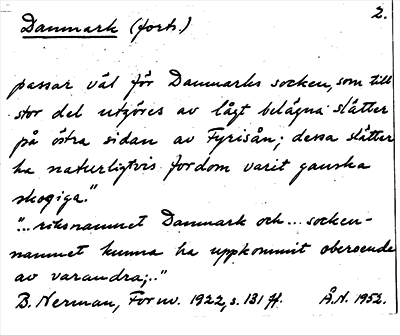 Danmark (forts.) 2.
passar väl för Danmarks socken, som till
stor del utgöres av lågt belägna slätter
på östra sidan av Fyrisån; dessa slätter
ha naturligtvis fordom varit ganska
skogiga."
"... riksnamnet Danmark och ... socken-
namnet kunna ha uppkommit oberoende
av varandra;.."
B. Nerman, Fornv. 1922, s. 131 ff. Å.N. 1952.